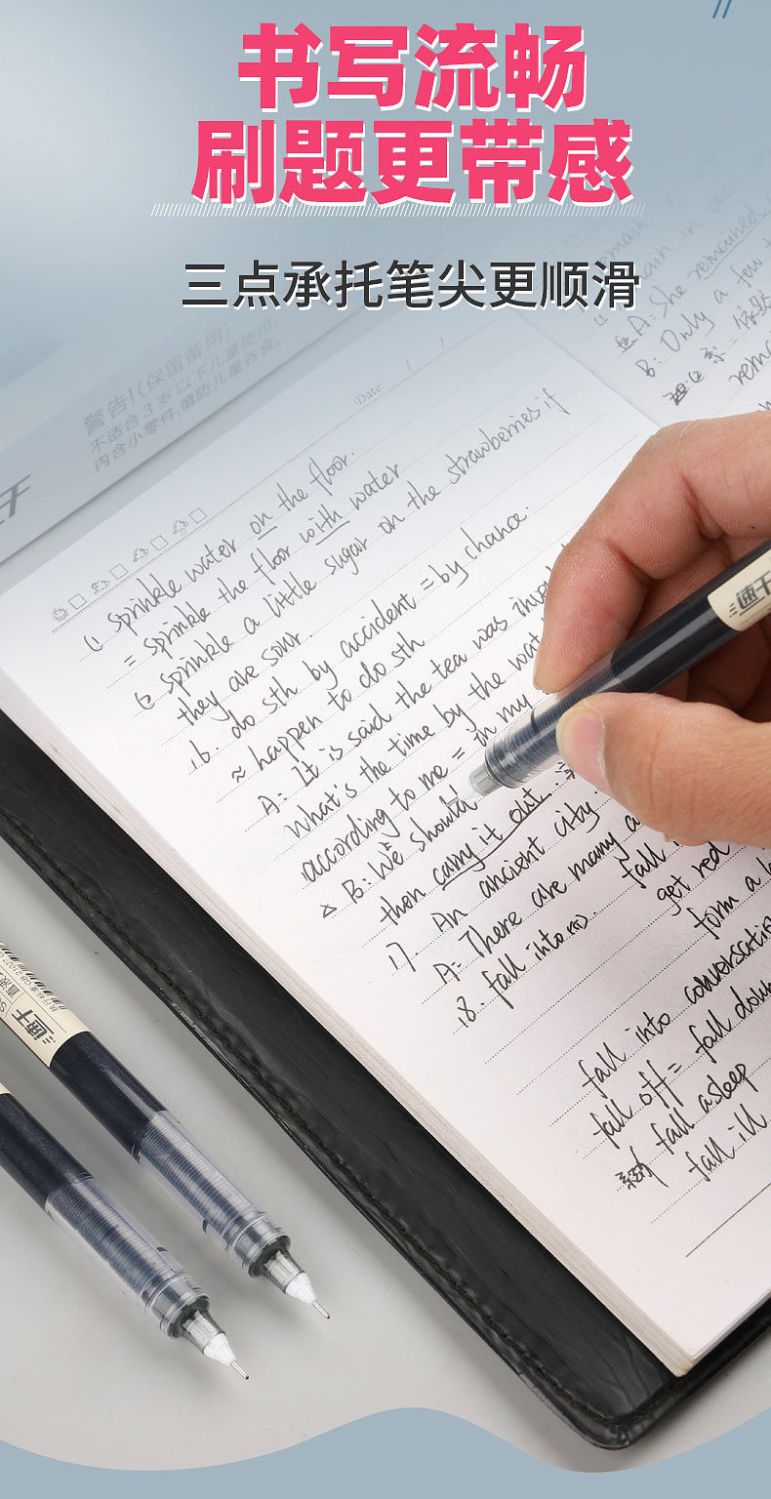 书写流畅
刷题更带感
三点承托笔尖更顺滑
警告!(保留备用)
不适合3岁以下儿童使用,
内含小零件,谨防儿童吞食.
Date: / /
(1) sprinkle water on the floor.
= sprinkle the floor with water
sprinkle a little sugar on the strawberries if
they are sour.
16. do sth by accident = by chance.
≈ happen to do sth
A: It is said the tea was
What's the time by the
according to me = in my
B: We should
then carry it out.
17. An ancient city
A: There are many
18. fall into
fall
get red
form a
fall into conversation
fall off = fall down
fall asleep
fall ill
A: She remained
B: Only a few
速干
速干
直液